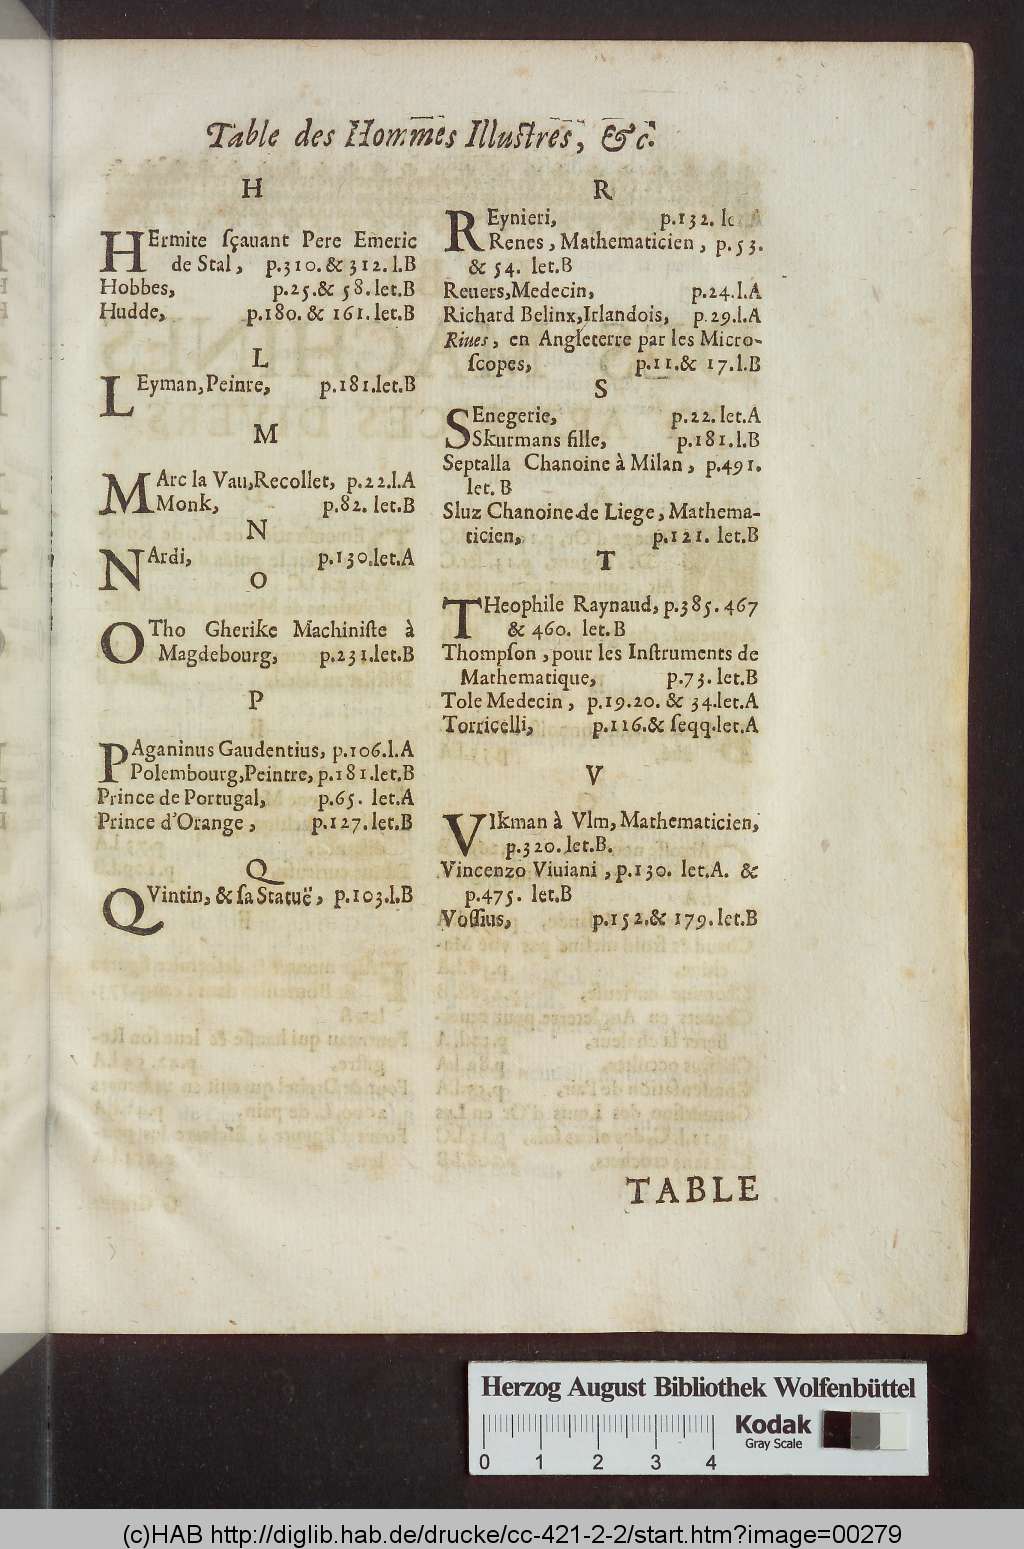 Table des Hommes Illustres, &c.
H
HErmite sçauant Pere Emeric
de Stal, p.310. & 312. l.B
Hobbes, p.25.& 58. let.B
Hudde, p.180. & 161. let.B
L
LEyman, Peintre, p.181.let.B
M
MArc la Vau, Recollet, p.22.l.A
Monk, p.82. let.B
N
NArdi, p.130.let.A
O
OTho Gherike Machiniste à
Magdebourg, p.231.let.B
P
PAganinus Gaudentius, p.106.l.A
Polembourg, Peintre, p.181.let.B
Prince de Portugal, p.65. let.A
Prince d'Orange, p.127. let.B
Q
QVintin, & sa Statuë, p.103.l.B
R
REynieri, p.132. let.A
Renes, Mathematicien, p.53.
& 54. let.B
Reuers, Medecin, p.24.l.A
Richard Belinx, Irlandois, p.29.l.A
Riues, en Angleterre par les Micro-
scopes, p.11.& 17.l.B
S
SEnegerie, p.22. let.A
Skurmans fille, p.181.l.B
Septalla Chanoine à Milan, p.491.
let. B
Sluz Chanoine de Liege, Mathema-
ticien, p.121. let.B
T
THeophile Raynaud, p.385. 467
& 460. let.B
Thompson, pour les Instruments de
Mathematique, p.73. let.B
Tole Medecin, p.19.20. & 34.let.A
Torricelli, p.116.& seqq.let.A
V
VIkman à Vlm, Mathematicien,
p.320. let.B.
Vincenzo Viuiani, p.130. let.A. &
p.475. let.B
Vossius, p.152.& 179. let.B
TABLE
Herzog August Bibliothek Wolfenbüttel
Kodak
Gray Scale
0 1 2 3 4
(c)HAB http://diglib.hab.de/drucke/cc-421-2-2/start.htm?image=00279